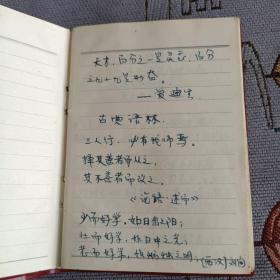 天才，百分之一是灵感，百分
之九十九是勤奋。
——爱迪生
古典语林
三人行，必有我师焉。
择其善者而从之，
其不善者而改之。
《论语·述而》
少而好学，如日出之阳；
壮而好学，如日中之光；
老而好学，如炳烛之明。（西汉刘向